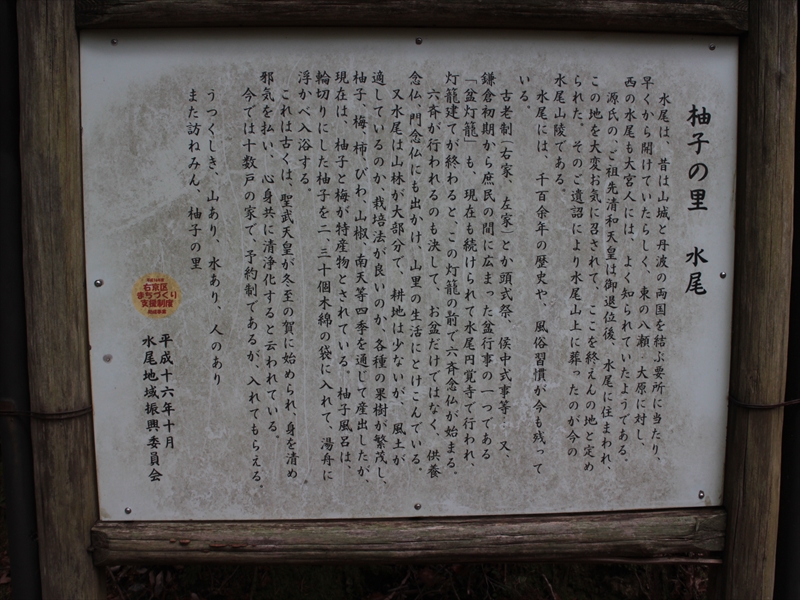 柚子の里　水尾
水尾は、昔は山城と丹波の両国を結ぶ要所に当たり、
早くから開けていたらしく、東の八瀬、大原に対し、
西の水尾も大宮人には、よく知られていたようである。
源氏の、ご祖先清和天皇は御退位後、水尾に住まわれ、
この地を大変お気に召されて、ここを終えんの地と定め
られた。そのご遺詔により水尾山上に葬ったのが今の
水尾山陵である。
水尾には、千百余年の歴史や、風俗習慣が今も残って
いる。
古老制（右家、左家）とか頭式祭、侯中式事等、又、
鎌倉初期から庶民の間に広まった盆行事の一つである
「盆灯籠」も、現在も続けられて水尾円覚寺で行われ、
灯籠建てが終わると、この灯籠の前で六斉念仏が始まる。
六斉が行われるのも決して、お盆だけではなく、供養
念仏、門念仏にも出かけ、山里の生活にとけこんでいる。
又水尾は山林が大部分で、耕地は少ないが、風土が
適しているのか、栽培法が良いのか、各種の果樹が繁茂し、
柚子、梅、柿、びわ、山椒、南天等四季を通じて産出したが、
現在は、柚子と梅が特産物とされている。柚子風呂は、
輪切りにした柚子を二、三十個木綿の袋に入れて、湯舟に
浮かべ入浴する。
これは古くは、聖武天皇が冬至の賀に始められ、身を清め
邪気を払い、心身共に清浄化すると云われている。
今では十数戸の家で、予約制であるが、入れてもらえる。
うつくしき、山あり、水あり、人のあり
また訪ねみん、柚子の里
右京区
まちづくり
支援制度
平成十六年十月
水尾地域振興委員会